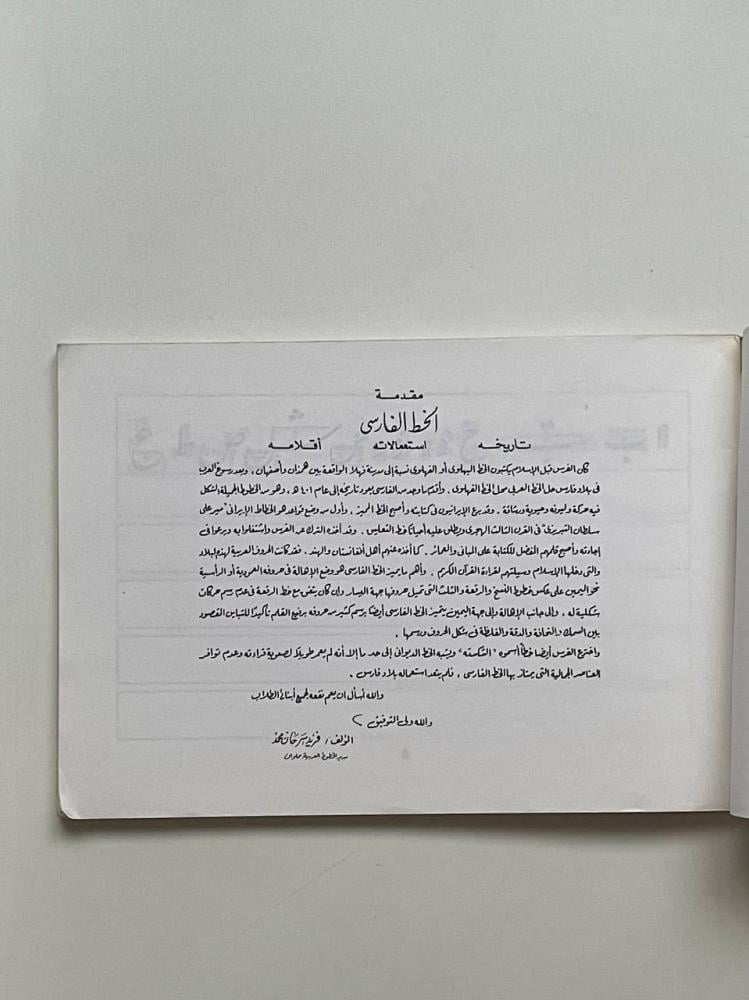 مقدمة
الخط الفارسى
تاريخه استعمالاته أقلامه
كان الفرس قبل الإسلام يكتبون الخط البهلوى أو الفهلوى نسبة إلى مدينة فهلا الواقعة بين همزان وأصفهان . وبعد رسوخ العرب
فى بلاد فارس حل الخط العربى محل الخط الفهلوى . وأقدم ما وجد من الفارسى يعود تاريخه إلى عام ٤٠١ هـ ، وهو من الخطوط الجميلة الشكل
فيه حركة وليونة وحيوية ورشاقة . وقد برع الإيرانيون فى كتابته وأصبح الخط المميز . وأول من وضع قواعده الخطاط الإيرانى "مير على
سلطان التبريزى" فى القرن الثالث الهجرى ويطلق عليه أحياناً خط التعليق . وقد أخذه الترك عن الفرس واشتغلوا به وبرعوا فى
إجادته وأصبح قلمهم المفضل للكتابة على المبانى والعمائر . كما أخذه عنهم أهل أفغانستان والهند . فقد كانت الحروف العربية لهذه البلاد
والتى دخلها الإسلام وسيلتهم لقراءة القرآن الكريم . وأهم ما يميز الخط الفارسى هو وضع الإمالة فى حروفه العمودية أو الرأسية
نحو اليمين على عكس خطوط النسخ والرقعة والثلث التى تميل حروفها جهة اليسار وإن كان يتفق مع خط الرقعة فى عدم رسم حركات
شكلية له . وإلى جانب الإمالة وإلى جهة اليمين يتميز الخط الفارسى أيضا برسم كثير من حروفه برفيع القلم تأكيدًا للتباين المقصود
بين السمك والنحافة والدقة والغلظة فى شكل الحروف ورسمها .
واخترع الفرس أيضا خطاً أسموه "الشكسته" ويشبه الخط الديوانى إلى حد ما إلا أنه لم يعمر طويلاً لصعوبة قراءته وعدم توافر
العناصر الجمالية التى يمتاز بها الخط الفارسى ، فلم يتعد استعماله بلاد فارس .
والله أسأل ان يعم نفعه لجميع أبنائى الطلاب
والله ولى التوفيق
المؤلف / فريد سرحان محمد
مدير الخطوط العربية حلوان